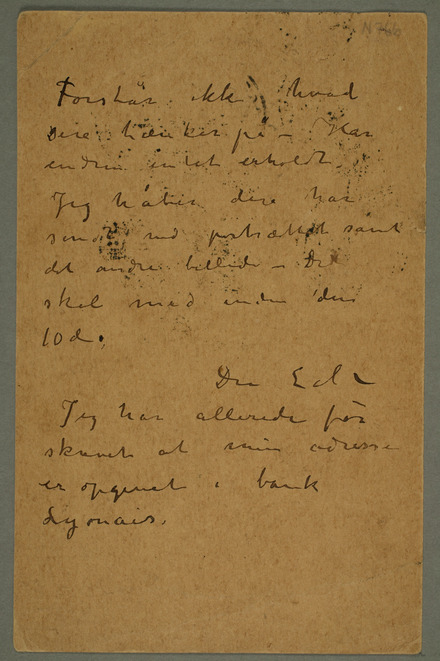 N 766
Forstår ikke hvad
Dere tænker på – Har
endnu intet erholdt.
Jeg håber dere har
sendt ned portrættet samt
det andre billede – De
skal med inden den
10de.
Din Edv
Jeg har allerede før
skrevet at min adresse
er opgivet i bank
Lyonais.